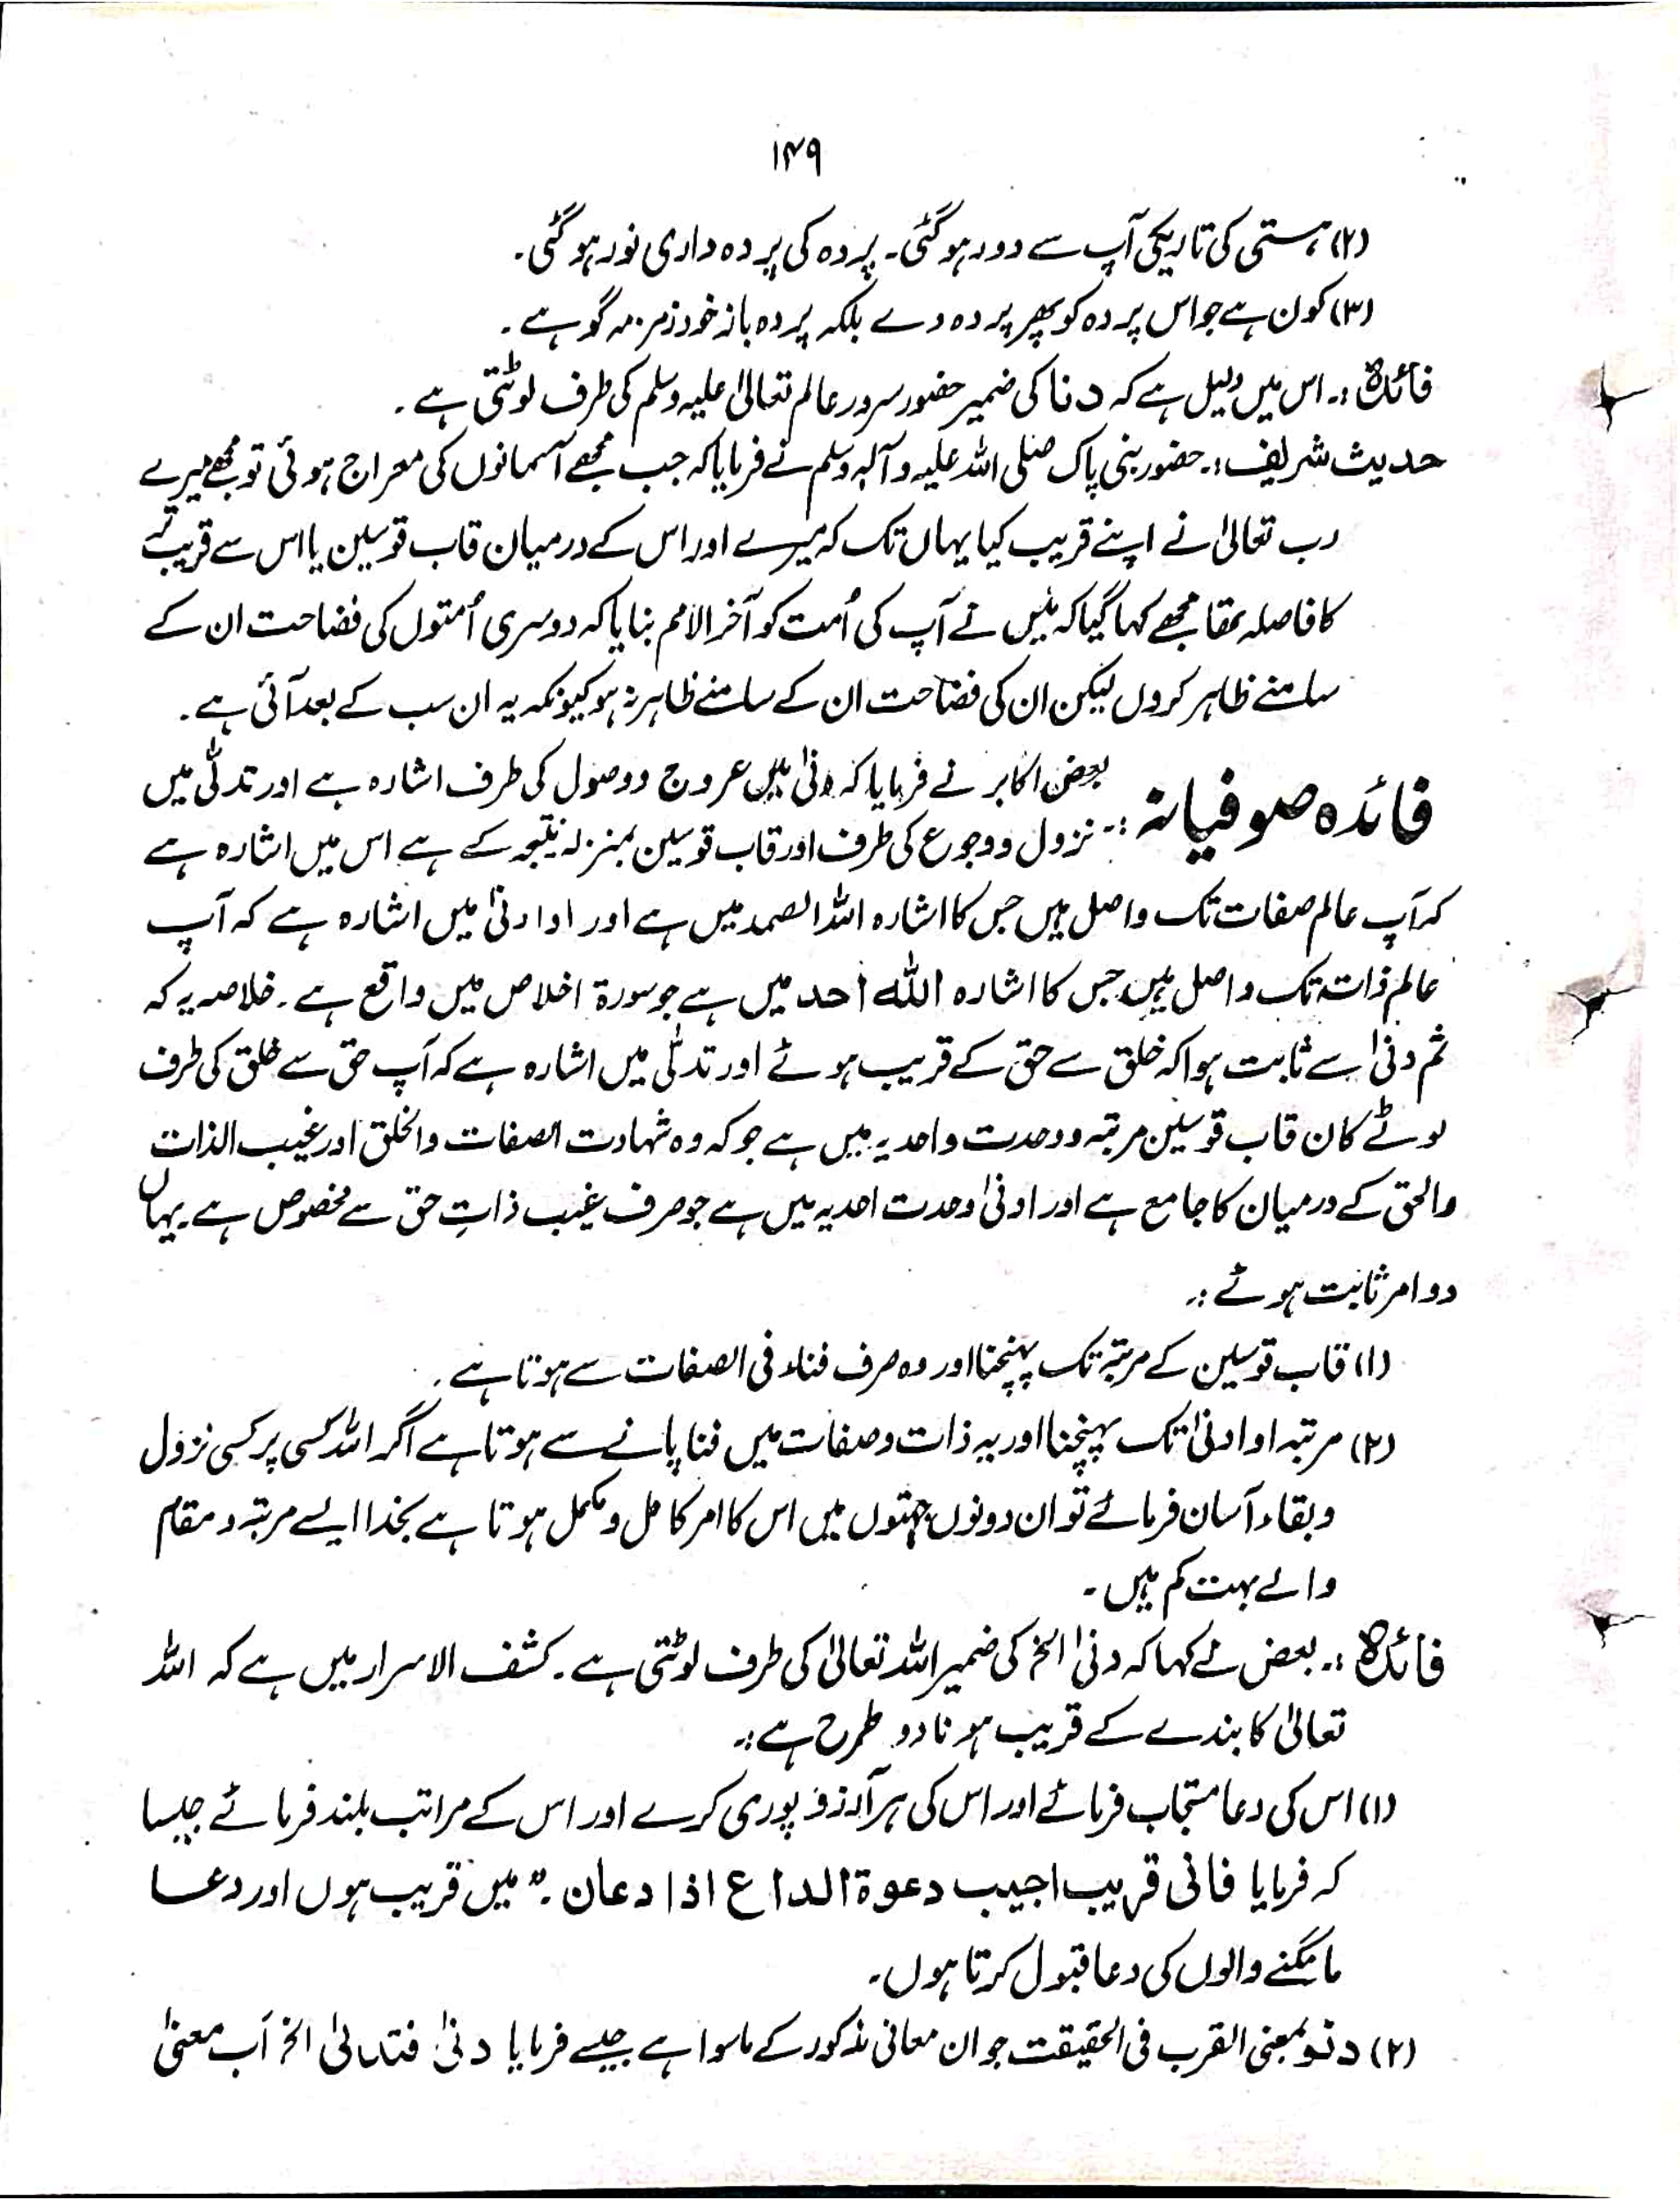 ۱۴۹
(۲) ہستی کی تاریکی آپ سے دور ہوگئی۔ پردہ کی پردہ داری نور ہوگئی۔
(۳) کون ہے جو اس پردہ کو پھر پردہ دے بلکہ پردہ باز خود زمزمہ گو ہے۔
فائدہ :۔ اس میں دلیل ہے کہ دنا کی ضمیر حضور سرور عالم تعالیٰ علیہ وسلم کی طرف لوٹتی ہے۔
حدیث شریف :۔ حضور بنی پاک صلی اللہ علیہ وآلہ وسلم نے فرمایا کہ جب مجھے آسمانوں کی معراج ہوئی تو مجھے میرے
رب تعالیٰ نے اپنے قریب کیا یہاں تک کہ میرے اور اس کے درمیان قاب قوسین یا اس سے قریب تر
کا فاصلہ تھا مجھے کہا گیا کہ میں نے آپ کی اُمت کو آخر الامم بنایا کہ دوسری اُمتوں کی فضاحت ان کے
سامنے ظاہر کروں لیکن ان کی فضاحت ان کے سامنے ظاہر نہ ہو کیونکہ یہ ان سب کے بعد آئی ہے۔
فائدہ صوفیانہ :۔ بعض اکابر نے فرمایا کہ دنیٰ میں عروج و وصول کی طرف اشارہ ہے اور تدلّٰی میں
نزول و وجوع کی طرف اور قاب قوسین بمنزلہ نتیجہ کے ہے اس میں اشارہ ہے
کہ آپ عالم صفات تک واصل ہیں جس کا اشارہ اللہ الصمد میں ہے اور او ادنیٰ میں اشارہ ہے کہ آپ
عالم ذات تک واصل ہیں جس کا اشارہ اللہ احد میں ہے جو سورۃ اخلاص میں واقع ہے۔ خلاصہ یہ کہ
ثم دنیٰ سے ثابت ہوا کہ خلق سے حق کے قریب ہوئے اور تدلّٰی میں اشارہ ہے کہ آپ حق سے خلق کی طرف
لوٹے کان قاب قوسین مرتبہ و وحدت واحدیہ میں ہے جو کہ وہ شہادت الصفات والخلق اور غیب الذات
والحق کے درمیان کا جامع ہے اور ادنیٰ وحدت احدیہ میں ہے جو صرف غیب ذاتِ حق سے مخصوص ہے۔ یہاں
دو امر ثابت ہوئے :۔
(۱) قاب قوسین کے مرتبہ تک پہنچنا اور وہ صرف فناء فی الصفات سے ہوتا ہے۔
(۲) مرتبہ او ادنیٰ تک پہنچنا اور یہ ذات و صفات میں فنا پانے سے ہوتا ہے اگر اللہ کسی پر کسی نزول
و بقاء آسان فرمائے تو ان دونوں جہتوں میں اس کا امر کامل و مکمل ہوتا ہے بخدا ایسے مرتبہ و مقام
والے بہت کم ہیں۔
فائدہ :۔ بعض نے کہا کہ دنیٰ الخ کی ضمیر اللہ تعالیٰ کی طرف لوٹتی ہے۔ کشف الاسرار میں ہے کہ اللہ
تعالیٰ کا بندے کے قریب ہونا دو طرح ہے :۔
(۱) اس کی دعا مستجاب فرمائے اور اس کی ہر آرزو پوری کرے اور اس کے مراتب بلند فرمائے جیسا
کہ فرمایا فانی قریب اجیب دعوۃ الداع اذا دعان۔" میں قریب ہوں اور دعا
مانگنے والوں کی دعا قبول کرتا ہوں۔
(۲) دنو بمعنی القرب فی الحقیقت جو ان معانی مذکور کے ماسوا ہے جیسے فرمایا دنیٰ فتدلیٰ الخ اب معنیٰ